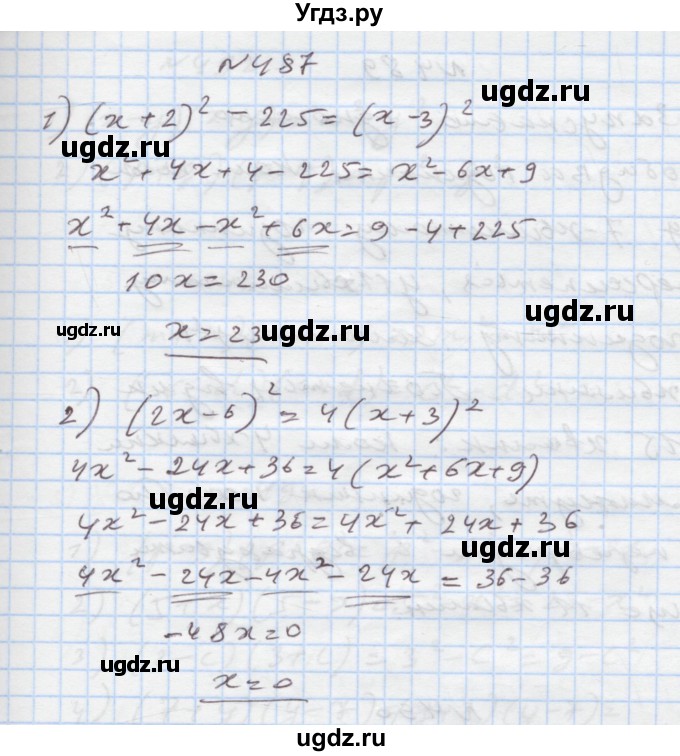 Угдз.ру
№487
1) (x+2)² - 225 = (x-3)²
ugdz.ru ugdz.ru
x² + 4x + 4 - 225 = x² - 6x + 9
x² + 4x - x² + 6x = 9 - 4 + 225
10x = 230
ugdz.ru
x = 23
ugdz.ru ugdz.ru
2) (2x-6)² = 4(x+3)²
4x² - 24x + 36 = 4(x² + 6x + 9)
ugdz.ru
4x² - 24x + 36 = 4x² + 24x + 36
ugdz.ru
4x² - 24x - 4x² - 24x = 36 - 36
-48x = 0
ugdz.ru
x = 0
ugdz.ru